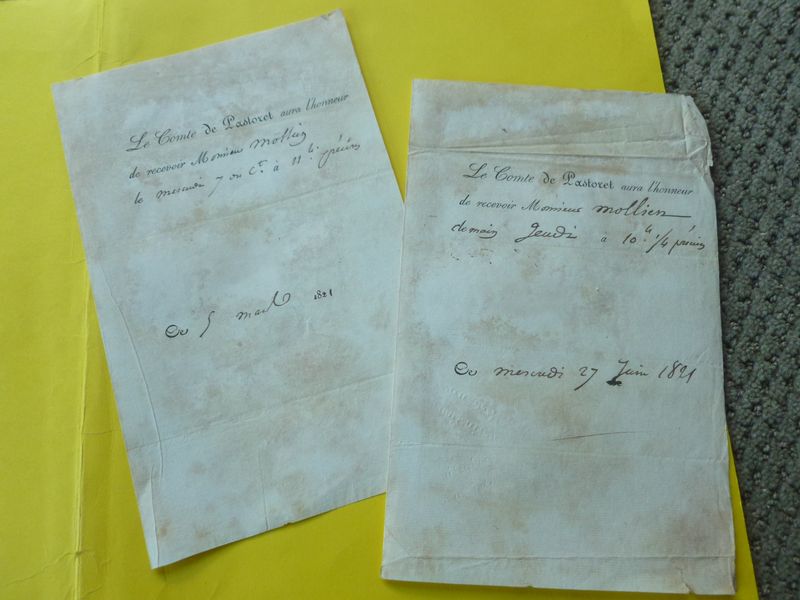 Le Comte de Pastoret aura l'honneur
de recevoir Monsieur Mollien
le mercredi 7 du Ct. à 11 h. précises
Ce 5 mars 1821
Le Comte de Pastoret aura l'honneur
de recevoir Monsieur Mollien
demain Jeudi à 10 h 1/4 précises
Ce mercredi 27 Juin 1821